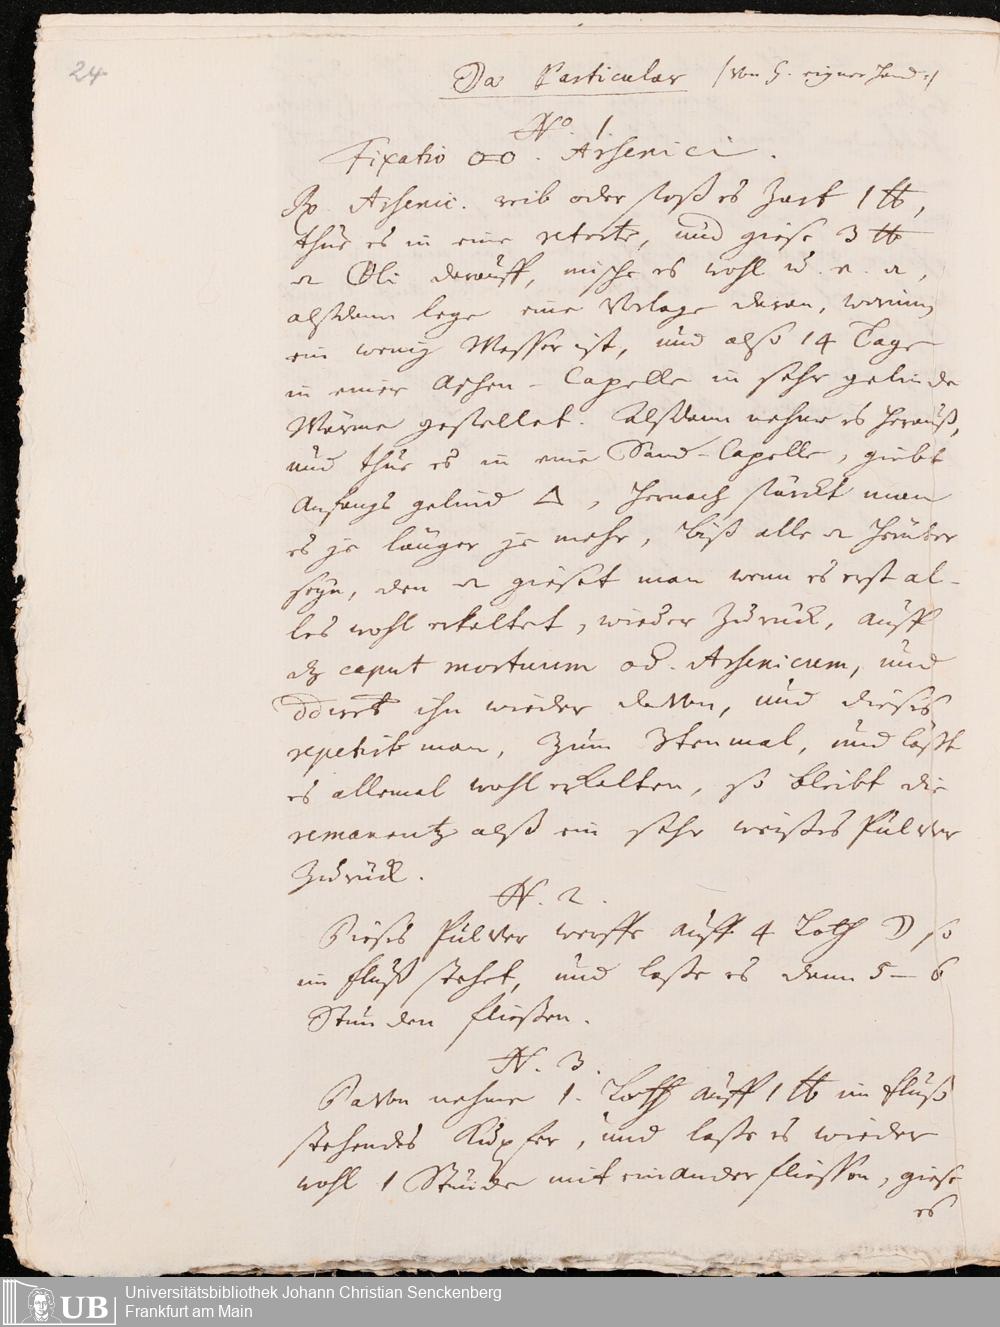 24
Da Particular /: von H. eigner Hand :/
No. 1
Fixatio o-o. Arsenici.
Rp. Arsenic. reib oder stoß es zart 1 ℔,
thue es in eine retorte, und giese 3 ℔
Oli darauff, mische es wohl
alßdann lege eine Vorlage daran, worinn
ein wenig Wasser ist, und alß 14 Tage
in einer Aschen-Capelle in sehr gelinde
Wärme gestellet. Alßdann nehme es herauß,
und thue es in eine Sand-Capelle, giebt
Anfangs gelind △, hernach stärckt man
es je länger je mehr, biß alle herüber
seyn, den gieset man wenn es erst al-
les wohl erkaltet, wieder zurück, auff
dz caput mortuum od. Arsenicum, und
ihn wieder davon, und dieses
repetirt man, zum 3tenmal, und läßt
es allemal wohl erkalten, so bleibt die
remanentz alß ein sehr weisses Pulver
zurück.
N. 2.
Dieses Pulver werffe auff 4 Loth ☽ so
im fluß stehet, und lasse es dann 5 – 6
Stunden fliessen.
N. 3.
Davon nehme 1. Loth auff 1 ℔ im fluß
stehendes Kupfer, und lasse es wieder
wohl 1 Stunde mit einander fliessen, giese
es
UB
Universitätsbibliothek Johann Christian Senckenberg
Frankfurt am Main